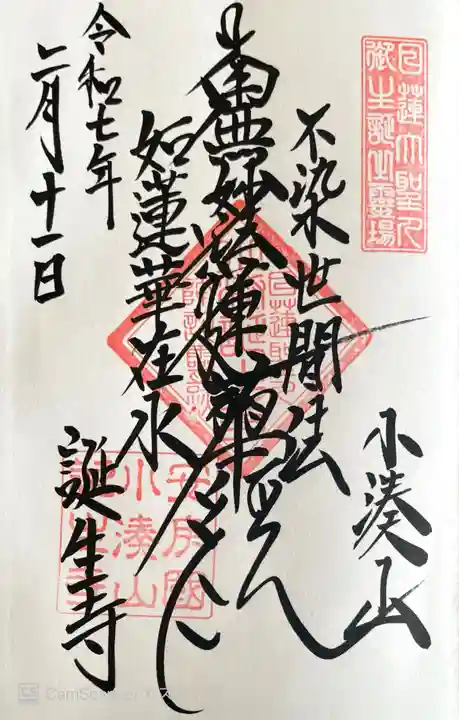 日蓮大聖人
御生誕之靈場
小湊山
不染世間法
南無妙法蓮華経
如蓮華在水
誕生寺
令和七年
二月十一日
安房國
小湊山
誕生寺
CamScanner